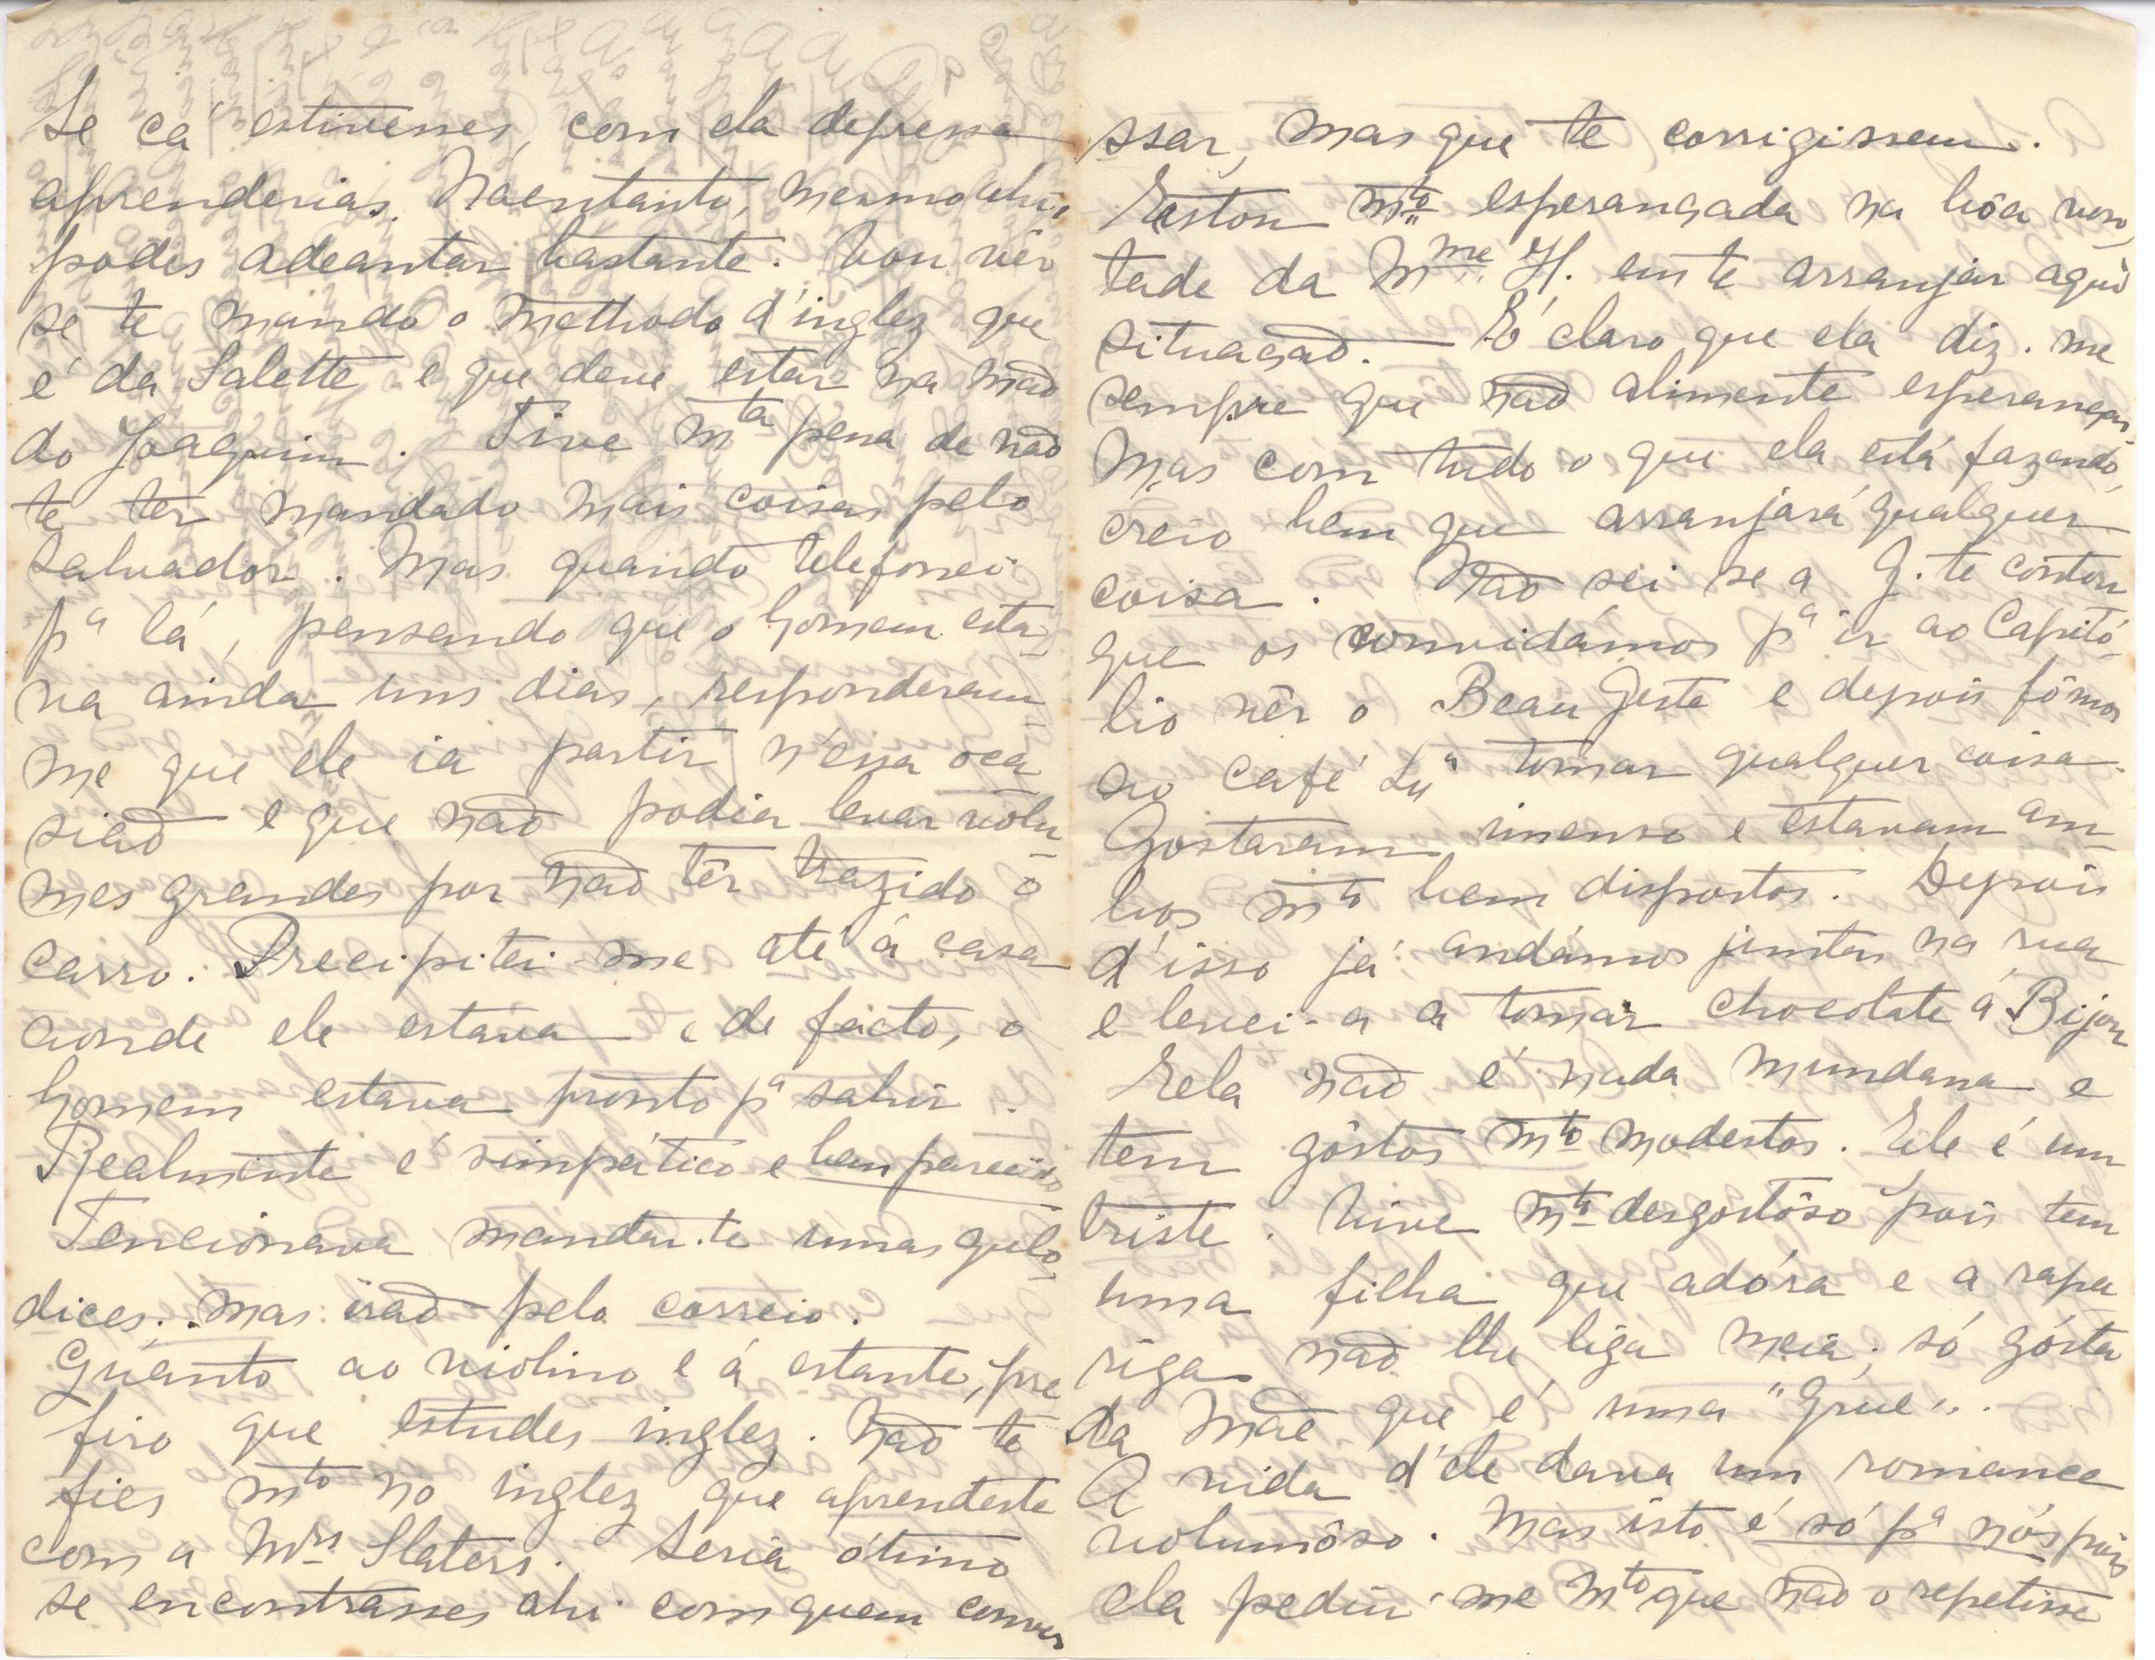 Se cá estivesses, com ela depressa
aprenderias. Naentanto, mesmo ahi,
podes adeantar bastante. Vou vêr
se te mando o methodo d'inglez que
é da Salette e que deve estar na mão
do Joaquim. Tive mta pena de não
te ter mandado mais coisas pelo
Salvador. Mas quando telefonei
pa lá, pensando que o homem esta-
va ainda uns dias, responderam-
me que ele ia partir n'essa oca-
sião e que não podia levar volu-
mes grandes por não têr trazido o
carro. Precipitei-me até á casa
aonde ele estava e de facto, o
homem estava pronto pa sahir.
Realmente é simpático e bem parecido
Tencionava mandar-te umas gulo-
dices, mas irão pelo correio.
Quanto ao violino e á estante, pre-
firo que estudes inglez. Não te
fies mto no inglez que aprendeste
com a Mrs Slaters. Seria ótimo
se encontrasses ahi com quem conver-
ssar, mas que te corrigissem.
Estou mto esperançada na bôa von-
tade da Mme H. em te arranjar aqui
situação. — É claro que ela diz-me
sempre que não alimente esperanças,
Mas com tudo o que ela está fazendo,
creio bem que arranjará qualquer
coisa. Não sei se a G. te contou
que os convidámos pa ir ao Capitó-
lio vêr o Beau Geste e depois fômos
ao café tomar qualquer coisa.
Gostaram imenso e estavam am-
bos mto bem dispostos. Depois
d'isso já andámos juntas na rua
e levei-a a tomar chocolate á Bijou
Ela não é nada mundana e
tem gôstos mto modestos. Ele é um
triste. Vive mto desgostôso pois tem
uma filha que adóra e a rapa
riga não lhe liga meia; só gósta
da Mãe que é uma "Grue".
A vida d'ele dava um romance
volumôso. Mas isto é só pa nós pois
ela pediu-me mto que não o repetisse